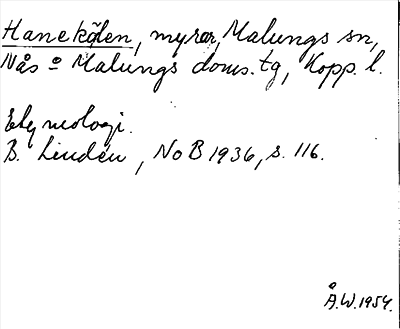 Hanekölen, myrar, Malungs sn,
Nås o Malungs doms. tg, Kopp. l.
Etymologi.
B. Lindén, NoB 1936, s. 116.
Å.W. 1954.